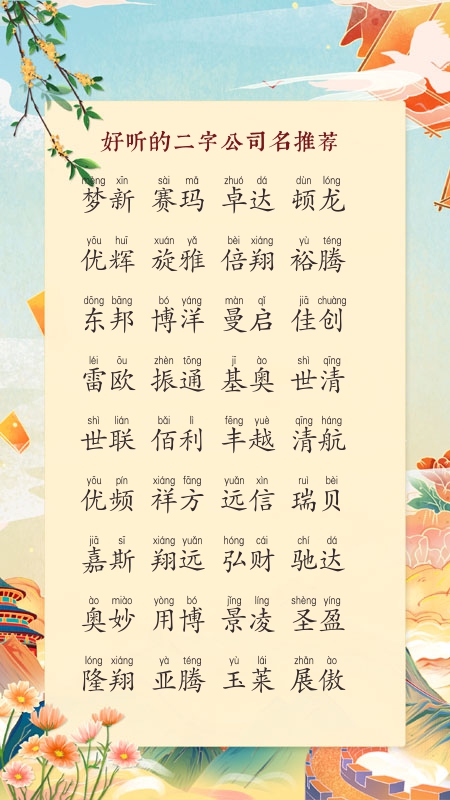 好听的二字公司名推荐
mèng xīn sài mǎ zhuó dá dùn lóng
梦新 赛玛 卓达 顿龙
yōu huī xuán yǎ bèi xiáng yù téng
优辉 旋雅 倍翔 裕腾
dōng bāng bó yáng màn qǐ jiā chuàng
东邦 博洋 曼启 佳创
léi ōu zhèn tōng jī ào shì qīng
雷欧 振通 基奥 世清
shì lián bǎi lì fēng yuè qīng háng
世联 佰利 丰越 清航
yōu pín xiáng fāng yuǎn xìn ruì bèi
优频 祥方 远信 瑞贝
jiā sī xiáng yuǎn hóng cái chí dá
嘉斯 翔远 弘财 驰达
ào miào yòng bó jǐng líng shèng yíng
奥妙 用博 景凌 圣盈
lóng xiáng yà téng yù lái zhǎn ào
隆翔 亚腾 玉莱 展傲